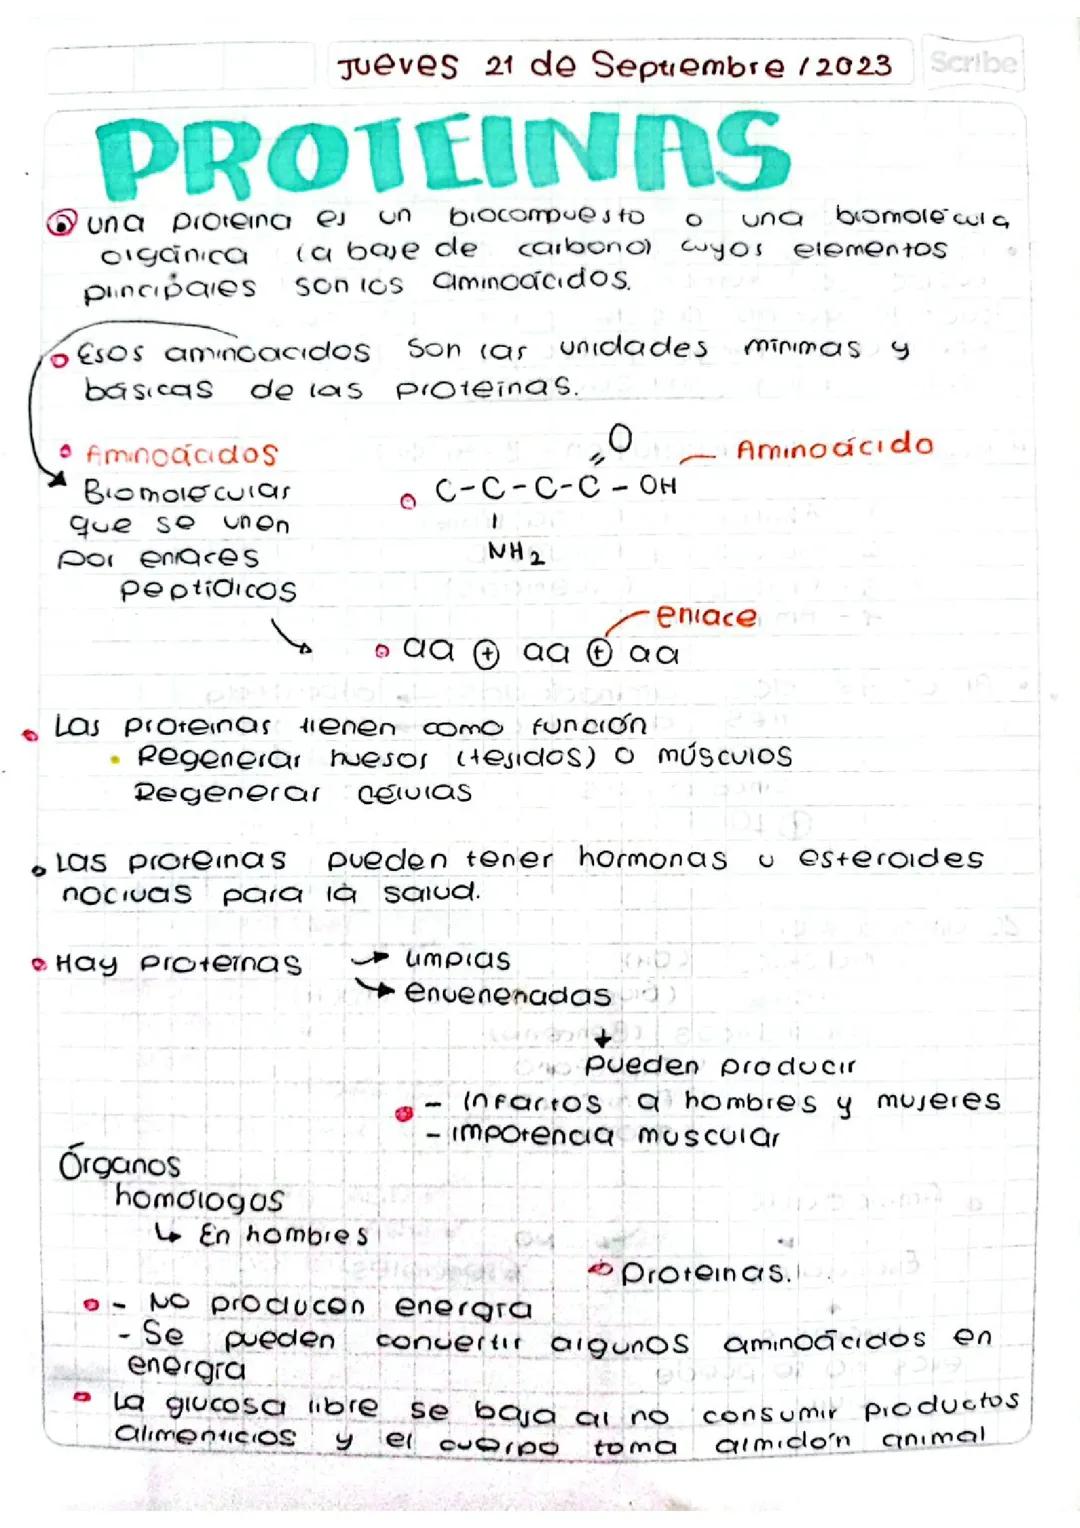 Jueves 21 de Septiembre / 2023
Scribe
PROTEINAS
una proteina es un biocompuesto o una biomolécula
orgánica (a base de carbono) cuyos elementos
principales son los aminoácidos.
Esos aminoacidos son las unidades mínimas y
básicas de las proteínas.
Aminoácidos
Biomoléculas
que se unen
por enlaces
peptídicos
O
Aminoácido
C-C-C-C-OH
NH2
enlace
aa + aa + aa
Las proteinas tienen como función
Regenerar huesos (tejidos) o músculos
Regenerar células
Las proteinas pueden tener hormonas u esteroides
nocivas para la salud.
Hay proteínas → limpias
→ envenenadas
↓
pueden producir
- Infartos a hombres y mujeres
- impotencia muscular
Órganos
homólogos
↳ En hombres
Proteinas.
- NO producen energía
- Se pueden convertir algunos aminoácidos en
energía
La glucosa libre se baja al no consumir productos
alimenticios y el cuerpo toma almidón animal